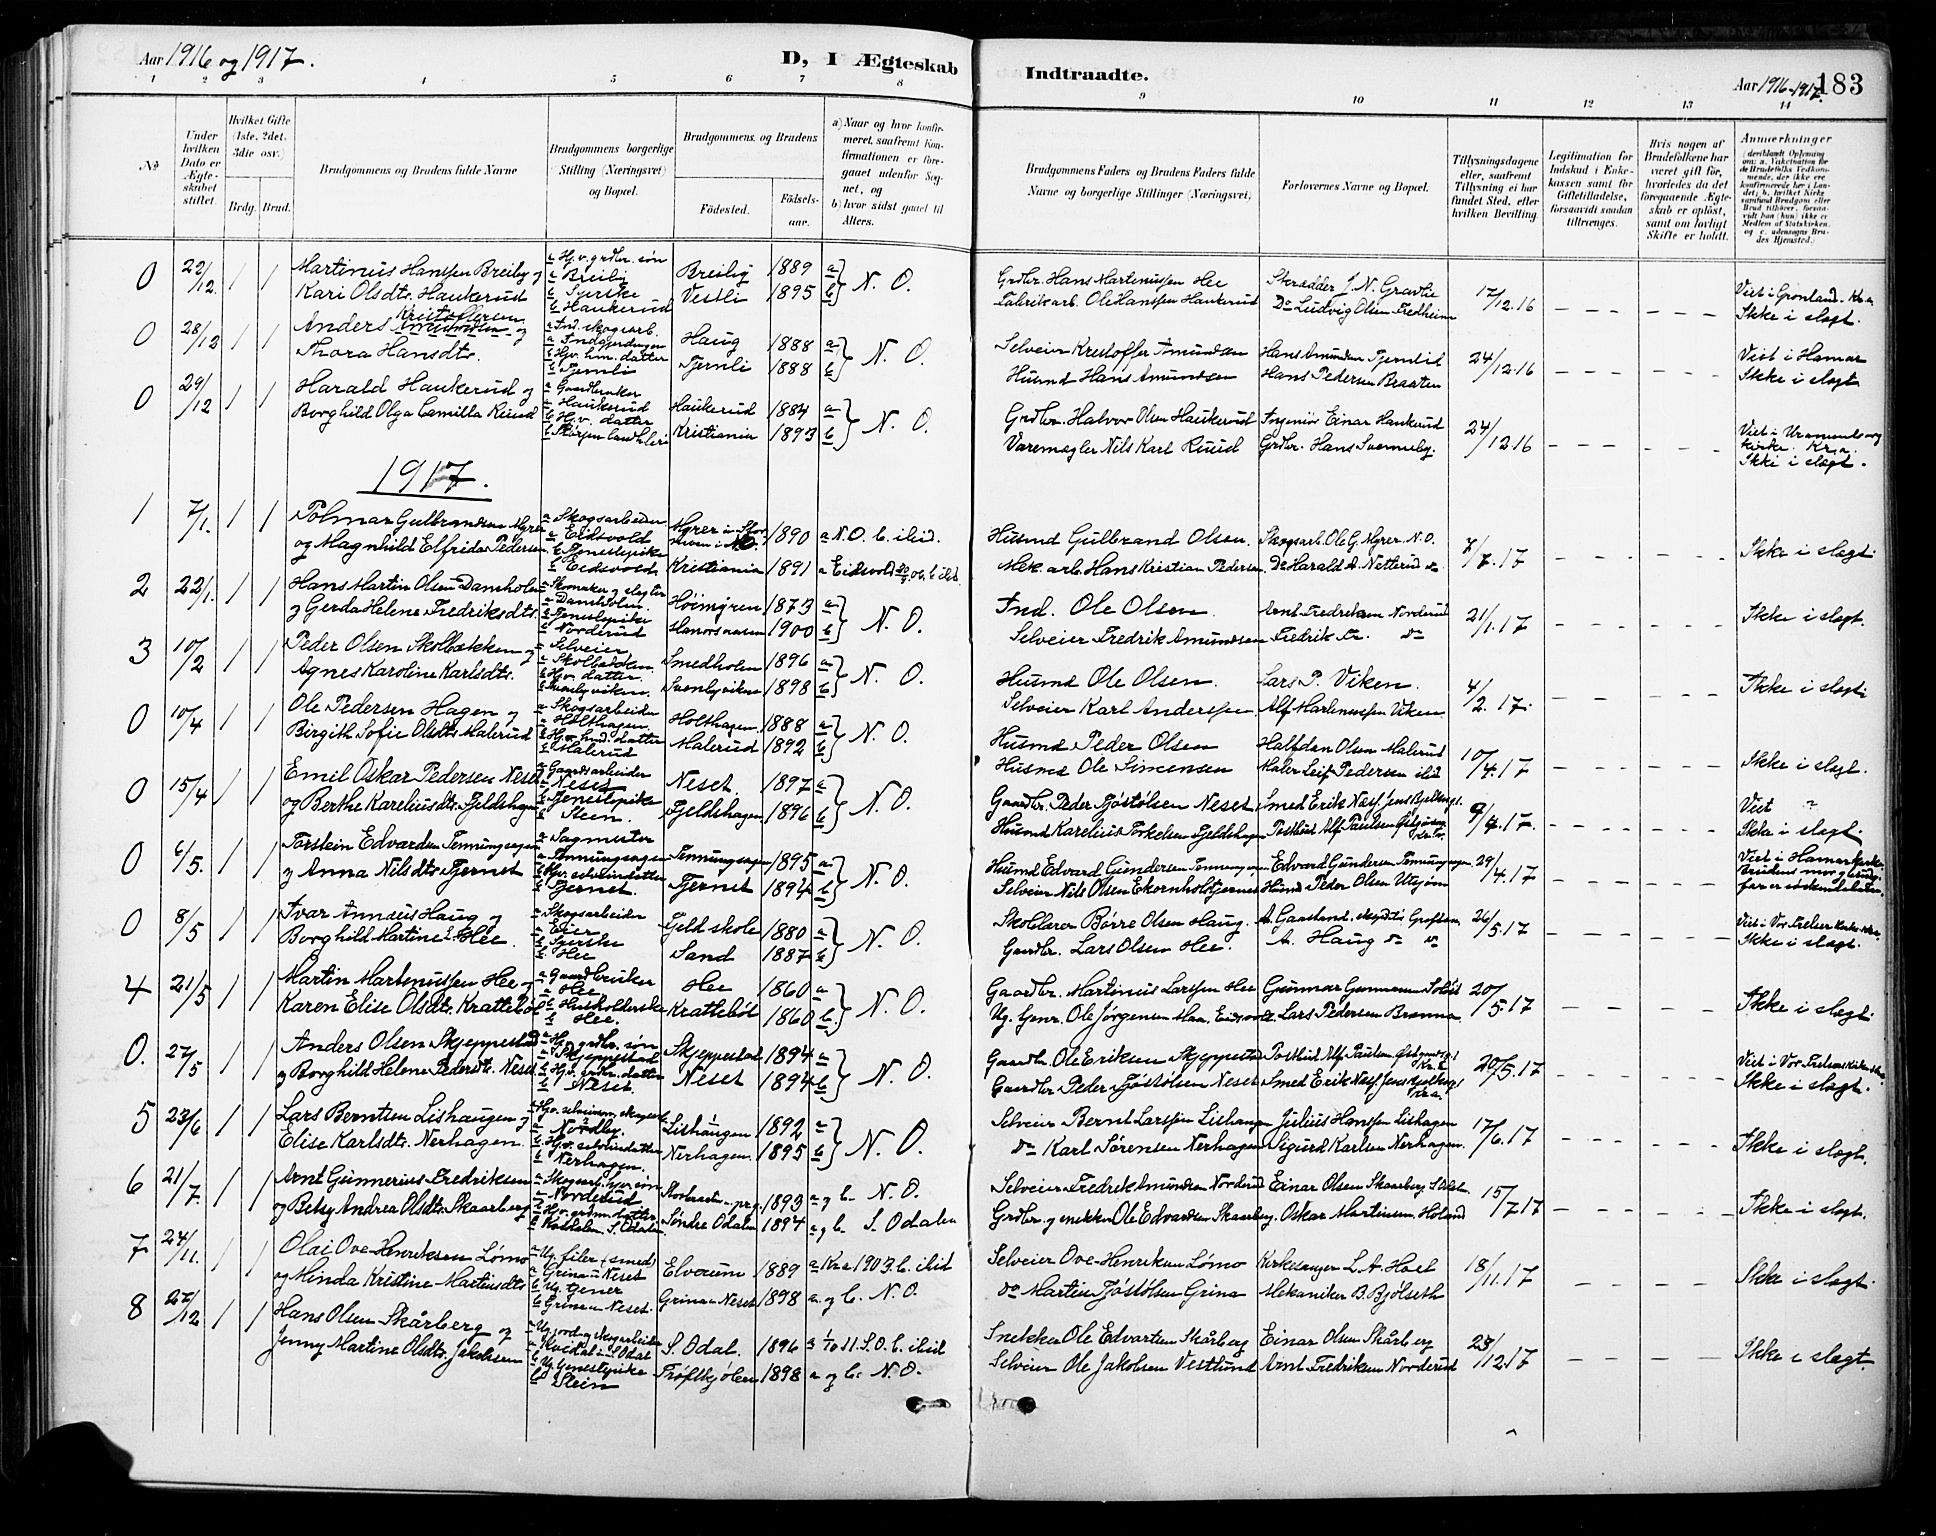 Aar 1916 og 1917.
D, I Ægteskab
Indtraadte.
Aar 1916-1917. 183
1 2 3 4 5 6 7 8 9 10 11 12 13 14
No
Under hvilken Dato er Ægteskabet stiftet.
Hvilket Gifte (1ste, 2det, 3die osv.)
Brdg. Brud.
Brudgommens og Brudens fulde Navne
Brudgommens borgerlige Stilling (Næringsvei) og Bopæl.
Brudgommens og Brudens
Fødested.
Fødselsaar.
a) Naar og hvor konfirmeret, saafremt Konfirmationen er foregaaet udenfor Sognet, og
b) hvor sidst gaaet til Alters.
Brudgommens Faders og Brudens Faders fulde Navne og borgerlige Stillinger (Næringsvei)
Forlovernes Navne og Bopæl.
Tillysningsdagene eller, saafremt Tillysning ei har fundet Sted, efter hvilken Bevilling.
Legitimation for Indskud i Enkekassen samt for Giftetilladelse, forsaavidt saadan tiltrænges.
Hvis nogen af Brudefolkene har været gift før, hvorledes da det foregaaende Ægteskab er opløst, samt om lovligt Skifte er holdt.
Anmerkninger
0 22/12 1 1 Martinus Hanssen Breiby og a Hjv. grdbr. søn a Breiby Breilig 1889 a N. O. Grdbr. Hans Martenussen Hee Skrædder J. N. Gravlie 17/12.16 Viet i Grønland. Kr.a
Kari Olsdtr. Haukerud b Syerske b Haukerud Vestli 1895 b Fabrikarb. Ole Hanssen Haukerud Do Ludvig Olsen Fredheim Ikke i slegt.
0 28/12 1 1 Anders Kristoffersen og a Ind. skogsarb. Haug 1888 a N. O. Selveier Kristoffer Amundsen Hans Amundsen Tjernlid 24/12.16 Viet i Hamar
Thora Hansdtr. b Hjv. hm. datter b Tjernli Tjernli 1888 b Husmd Hans Amundsen Hans Pedersen Braaten Ikke i slegt
0 29/12 1 1 Harald Haukerud og a Gaardbruker a Haukerud Haukerud 1884 a N. O. Grdbr. Halvor Olsen Haukerud Ingeniør Einar Haukerud 24/12.16 Viet i Uranienborg kirke. Kr.a.
Borghild Olga Camilla Ruud b Hjv. datter Kristiania 1893 b Varemægler Nils Karl Ruud Grdbr. Hans Svenneby. Ikke i slegt.
1917.
1 7/1. 1 1 Tolmar Gulbrandsen Myrer a Skogsarbeider a Eidsvold 1890 a N. O. b. ibid. Husmd Gulbrand Olsen. Skogsarb. Ole G. Myrer N. O. 7/7.17 Ikke i slegt.
og Magnhild Elfrida Pedersen b Tjenestepike b Eidsvold Kristiania 1891 a Eidsvold b ibid. Mek. arb. Hans Kristian Pedersen Do Harald A. Netterud do
2 22/1. 1 1 Hans Martin Olsen Damholen a Skomaker og sleg a Damholen. Høimyren 1873 a N. O. Ind. Ole Olsen. Arnt Fredriksen Norderud 21/1.17 Ikke i slegt.
og Gerda Helene Fredriksdtr. b Tjenestepike b Norderud 1900 b Selveier Fredrik Amundsen Fredrik do. do
3 10/2 1 1 Peder Olsen Skolbækken og a Selveier a Skolbækken. Smedholen 1896 a N. O. Husmd Ole Olsen. Lars P. Viken. 4/2.17. Ikke i slegt.
Agnes Karoline Karlsdtr. b Hjv. datter b Svenbyviken. Svenbyviken 1898 b Selveier Karl Anderssen Alf Martenussen Viken
0 10/4 1 1 Ole Pedersen Hagen og a Skogsarbeider a Holthagen Holthagen 1888 a N. O. Husmd Peder Olsen Halfdan Olsen Malerud 10/4.17 Ikke i slegt.
Birgith Sofie Olsdtr. Malerud b Hjv. hmd. datter b Malerud Malerud 1892 b Husmd Ole Simensen Maler Leif Pedersen ibid
0 15/4 1 1 Emil Oskar Pedersen Neset a Gaardsarbeider a Neset Neset. 1897 a N. O. Gaardbr. Peder Tjøstølsen Neset Smed Erik Næss 9/4.17. Viet
og Berthe Kareliusdtr. Fjeldshagen b Tjenestepike b Steen. Fjeldshagen 1896 b Husmd Karelius Torkelsen Fjeldshagen Postbud Alf Paulsen Ikke i slegt.
0 6/5. 1 1 Torstein Edvardsen Tenningsagen a Sagmester a Tenningsagen Tenningsagen 1895 a N. O. Husmd Edvard Gundersen Tenningsagen Edvard Gundersen Tenningsagen 29/4.17 Viet i Hamar kirke
og Anna Nilsdtr. Tjernet b Hjv. selveierdatter b Tjernet. Tjernet 1894 b Selveier Nils Olsen Ekornholtjernet Husmd Peder Olsen Utsjøen Brudens mor og brudg. far er søskendebarn.
0 8/5 1 1 Ivar Annæus Haug og a Skogsarbeider a Eier Fjeldskole 1880 a N. O. Skolelærer Børre Olsen Haug. A. Gaasland 26/5.17 Viet i Vor Frelser Kirke Kr.a.
Borghild Martine L. Hee. b Syerske b Hee Sand 1887 b Gaardbr. Lars Olsen Hee. A. Haug do do Ikke i slegt.
4 21/5 1 1 Martin Martenussen Hee og a Gaardbruker a Hee Hee 1860 a N. O. Gaardbr. Martinus Larssen Hee Gunnar Gunnarsen 20/5.17 Ikke i slegt.
Karen Elise Olsdtr. Krattebøl b Husholderske b Hee. Krattebøl 1860 b. Ug. Gmr. Ole Jørgensen Lars Pedersen Brænna
0. 27/5 1 1 Anders Olsen Skjeppestad a Hjv. grdbr. søn a Skjeppestad Skjeppestad 1894 a N. O. Gaardbr. Ole Eriksen Skjeppestad Postbud Alf Paulsen 20/5.17 Viet i Vor Frelsers Kirke
og Borghild Helene Pedersdtr. Neset b Hjv. grdbr. datter b Neset Neset 1894 b Gaardbr Peder Tjøstølsen Neset Smed Erik Næss Ikke i slegt.
5 23/6 1 1 Lars Berntsen Lishaugen og a Hjv. selveiersøn, skogsarb. a Nordby. Lishaugen 1892 a N. O. Selveier Bernt Larssen Lishaugen Julius Hanssen Lishagen 17/6.17 Ikke i slegt.
Elise Karlsdtr. Nerhagen b Hjv. selveierdatter b Nerhagen. Nerhagen. 1895 b Do Karl Sørensen Nerhagen Sigurd Karlsen Nerhagen.
6 21/7. 1 1 Arnt Gunnerius Fredriksen a Skogsarb. hjv. søn a Norderud 1893 a og b. N. O. Selveier Fredrik Amundsen Norderud Einar Olsen Skaarberg S. Odalen 15/7.17 Ikke i slegt.
og Betsy Andrea Olsdtr. Skaarberg b Hjv. grdmn. datter Søndre Odalen 1894 a og b. S. Odalen Grdbr. og snekker Ole Edvardsen Skaarberg. Oskar Martinsen Holand
7 24/11. 1 1 Olai Ove-Henriksen Lømo a Ug. filer (smed) a Grina u. Neset Elverum 1889 a Kr.a 1903. b. ibid Selveier Ove-Henriksen Lømo Kirkesanger L. A. Hoel 18/11.17 Ikke i slegt.
og Minda Kristine Martinsdtr b Grina u. Neset. Grina u Neset 1898 a. og b. N. O. Do Martin Tjøstølsen Grina Mekaniker B. Bjølseth
8 27/12 1 1 Hans Olsen Skårberg og a Ug. jord og skogarbeider S. Odal. 1896 a 1/10 11. S. O. b. ibid Snekker Ole Edvartsen Skårberg Einar Olsen Skårberg 23/12.17 Ikke i slegt.
Jenny Martine Olsdtr. Jakobsen b Ug. tjenestepike b Stein Trøftkjølen 1898 a og b. N. O. Selveier Ole Jakobsen Vestlund Arnt Fredriksen Norderud